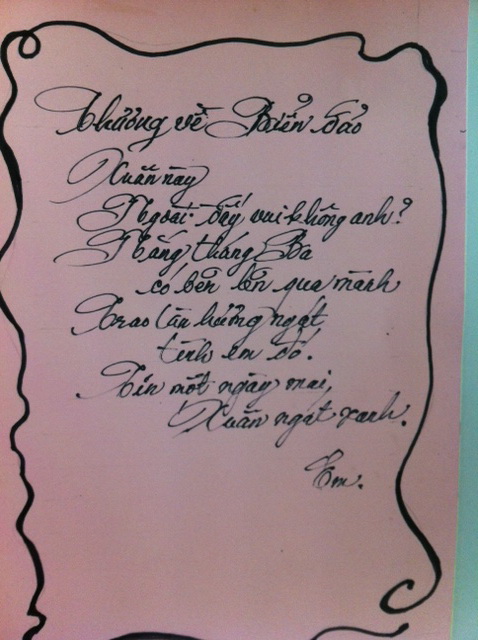 Thương về Biển đảo
Xuân này
Ngoài đấy vui không anh?
Nắng tháng Ba
có bẽn lẽn qua mành
Trao làn hương ngát
tình em đó.
Tin một ngày mai,
Xuân ngát xanh.
Em.